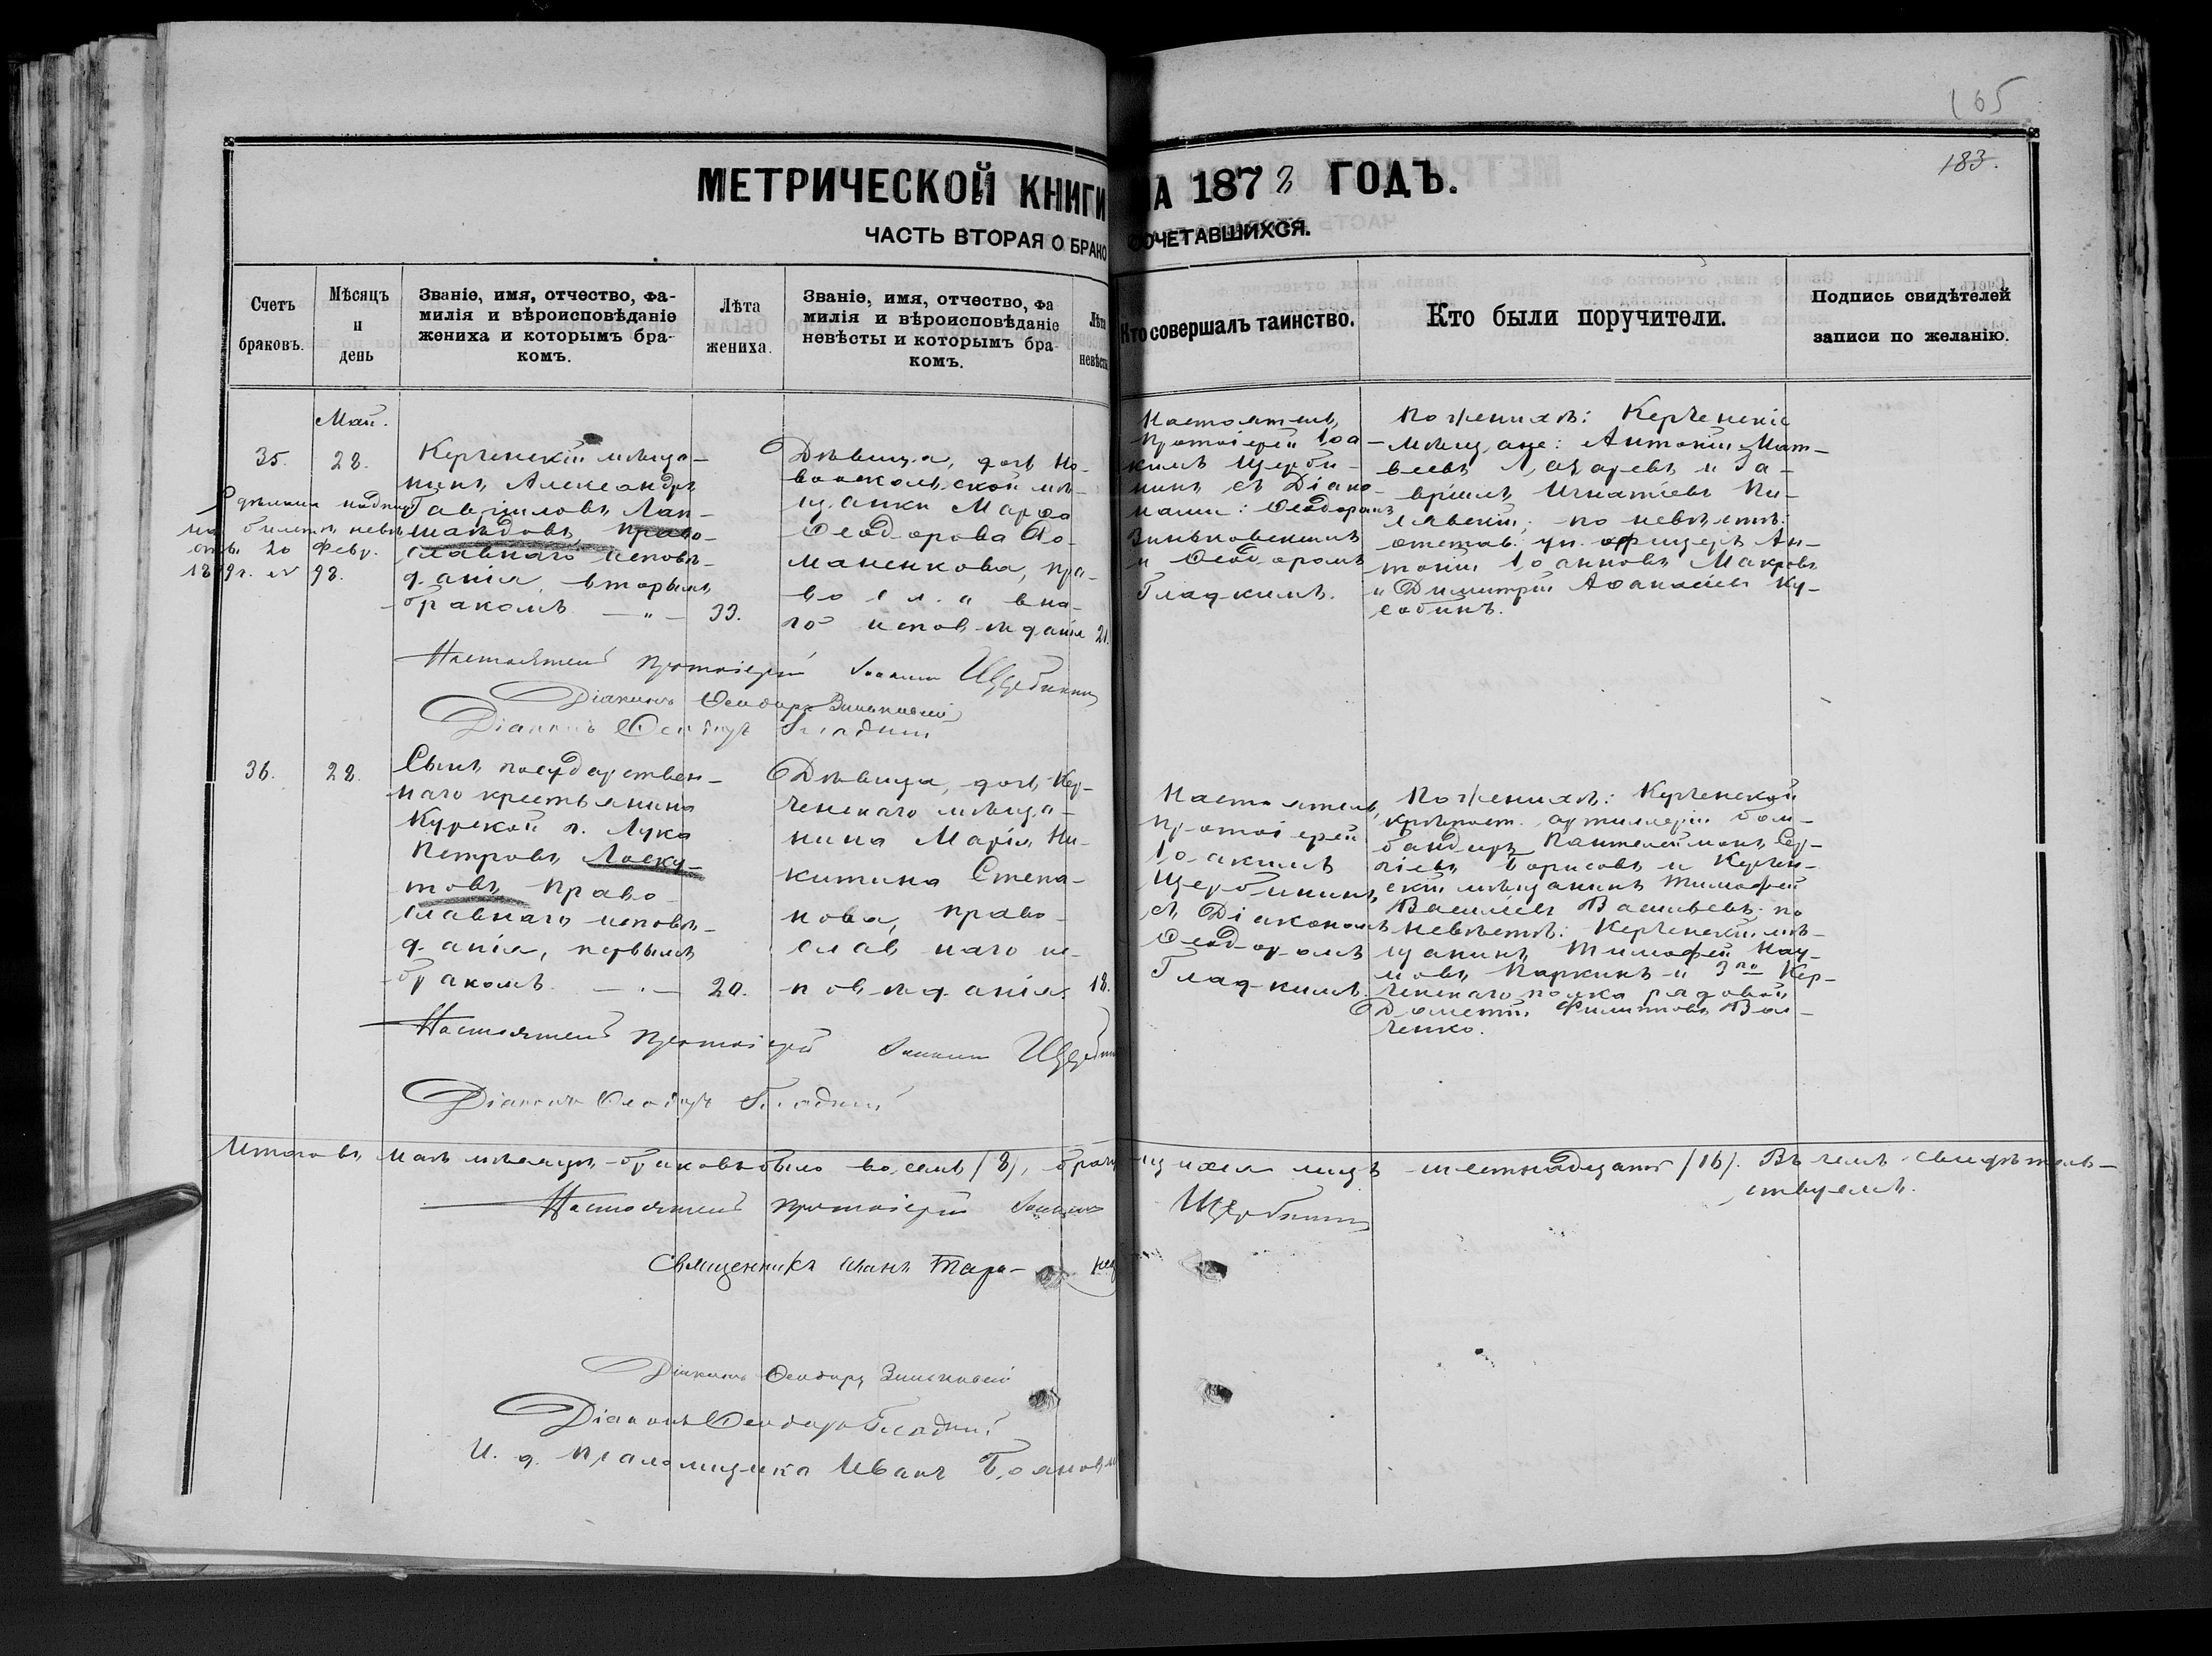 165
183.
МЕТРИЧЕСКОЙ КНИГИ
А 1878 ГОДЪ.
ЧАСТЬ ВТОРАЯ О БРАКО
СОЧЕТАВШИХСЯ.
Счетъ
браковъ.
Мѣсяцъ
и
день
Званіе, имя, отчество, фа-
милія и вѣроисповѣданіе
жениха и которымъ бра-
комъ.
Лѣта
жениха.
Званіе, имя, отчество, фа
милія и вѣроисповѣданіе
невѣсты и которымъ бра
комъ.
Лѣта
невѣсты
Кто совершалъ таинство.
Кто были поручители.
Подпись свидѣтелей
записи по желанію.
Май.
35.
28.
на билетъ невѣ
отъ 20 Февр.
1879г. № 98.
Керченскій мѣща-
нинъ Александръ
Гавриловъ Лап-
право-
славнаго исповѣ-
данія вторымъ
бракомъ —"—
33.
Дѣвица, дочь Но-
вооскольской мѣ-
щанки Марѳа
Ѳеодорова Ро-
маненкова, пра-
восл. внa-
го исповѣданія
21.
Настоятель,
протоіерей Іоа-
кимъ Щерби-
нинъ съ Діако-
нами: Ѳеодоромъ
Зиньковскимъ
и Ѳеодоромъ
Гладкимъ.
По женихѣ: Керченскіе
мѣщане: Антоній Мат-
вѣевъ Лазаревъ и Га-
вріилъ Игнатіевъ Пи-
лявскій; по невѣстѣ:
отстав. ун. офицеръ Ан-
тоній Іоанновъ Макровъ
и Димитрій Аѳанасіевъ Ку-
собинъ.
Настоятель Протоіерей Іоакимъ Щербининъ
Діаконъ Ѳеодоръ Зиньковскій
Діаконъ Ѳеодоръ Гладкий
36.
28.
Сынъ государствен-
наго крестьянина
Курской г. Лука
Петровъ Лоску-
товъ право-
славнаго исповѣ-
данія, первымъ
бракомъ. —"—
20.
Дѣвица, дочь Кер-
ченскаго мѣща-
нина Марія Ни-
китина Степа-
нова, право-
славнаго ис-
повѣданія.
18.
Настоятель,
протоіерей
Іоакимъ
Щербининъ
съ Діакономъ
Ѳеодоромъ
Гладкимъ.
По женихѣ: Керченской
крѣпост. артиллеріи бом-
бандиръ Пантелеймонъ Сер-
гіевъ Борисовъ и Керчен-
скій мѣщанинъ Тимофей
Васильевъ Васильевъ; по
невѣстѣ: Керченскій мѣ-
щанинъ Тимофей Нау-
мовъ Паркинъ и 3го Кер-
ченскаго полка рядовой
Дометій Филиповъ Вол-
ченко.
Настоятель Протоіерей Іоакимъ Щербин
Діаконъ Ѳеодоръ Гладкий
Итого въ Маѣ мѣсяцѣ браковъ было восемь /8/, брачу
щихся лицъ шестнадцать /16/. Въ чемъ свидѣтель-
ствуемъ.
Настоятель Протоіерей Іоакимъ Щербининъ
Священникъ Іоанъ Тара-
Діаконъ Ѳеодоръ Зиньковскій
Діаконъ Ѳеодоръ Гладкий
И. д. псаломщика Иванъ